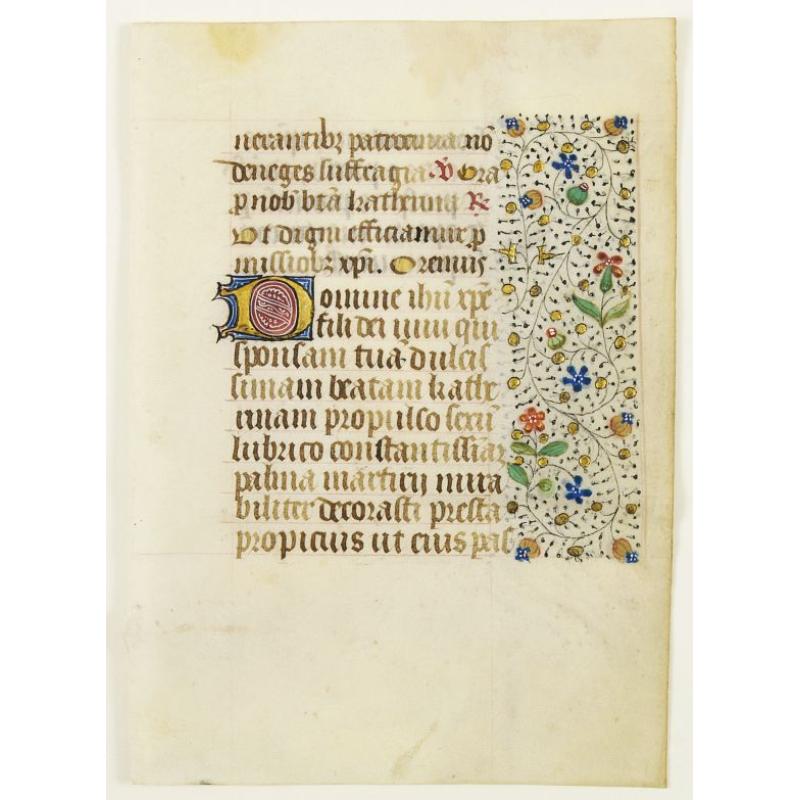 nerantibꝫ patrocinia nō
deneges suffragia ℣ Ora
ꝓ nob̄ btā katherina ℟
Vt digni efficiamur ꝓ
missiōbꝫ xp̄i. Oremus
Domine ihū xp̄e
fili dei uiui qui
sponsam tuā dulcis
simam beatam kathe
rinam propulso sexū
lubrico constantissīaꝫ
palma martirij mira
biliter decorasti presta
propicius ut eius pas